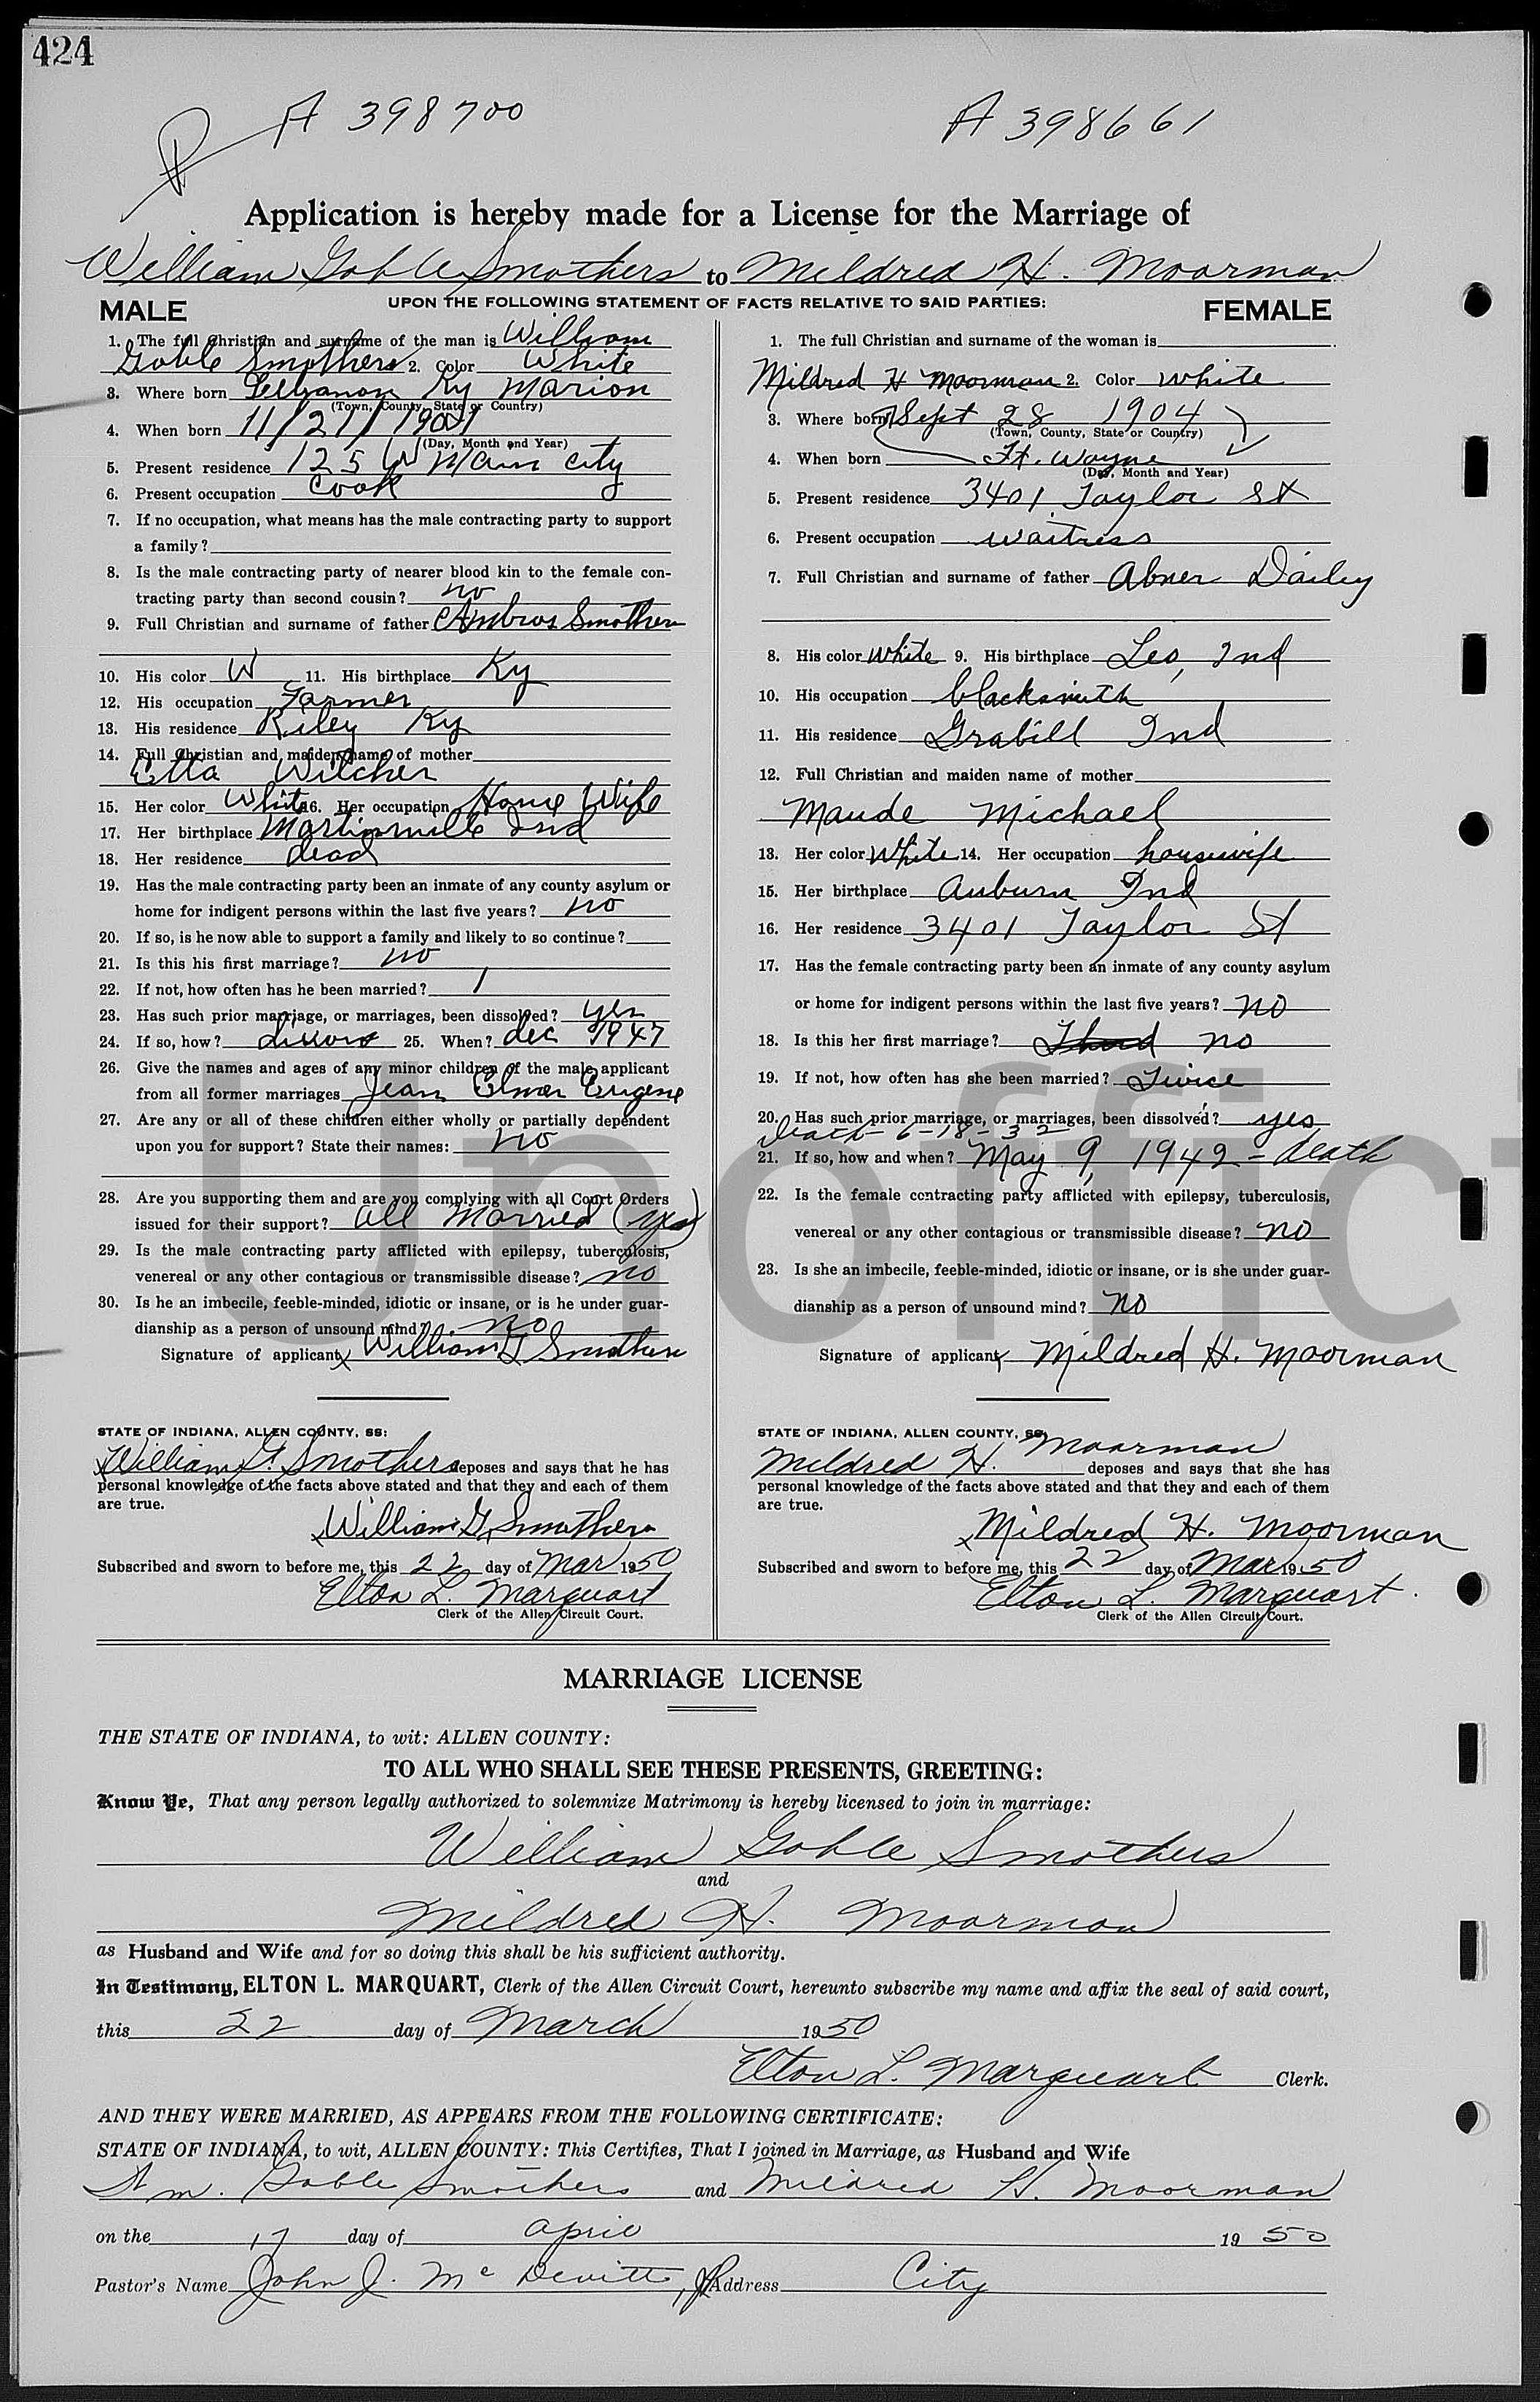 424
A 398700 A 398661
Application is hereby made for a License for the Marriage of
William Goble Smothers to Mildred H. Moorman
UPON THE FOLLOWING STATEMENT OF FACTS RELATIVE TO SAID PARTIES:
MALE
1. The full Christian and surname of the man is William
Goble Smothers 2. Color White
3. Where born Ky Marion
(Town, County, State or Country)
4. When born 11/21/
(Day, Month and Year)
5. Present residence 125 W Main City
6. Present occupation Cook
7. If no occupation, what means has the male contracting party to support
a family?
8. Is the male contracting party of nearer blood kin to the female con-
tracting party than second cousin? no
9. Full Christian and surname of father Ambros Smothers
10. His color W 11. His birthplace Ky
12. His occupation Farmer
13. His residence Riley Ky
14. Full Christian and maiden name of mother
Etta Wilcher
15. Her color White 16. Her occupation House Wife
17. Her birthplace Ind
18. Her residence dead
19. Has the male contracting party been an inmate of any county asylum or
home for indigent persons within the last five years? no
20. If so, is he now able to support a family and likely to so continue?
21. Is this his first marriage? no
22. If not, how often has he been married? 1
23. Has such prior marriage, or marriages, been dissolved? yes
24. If so, how? divorce 25. When? dec 1947
26. Give the names and ages of any minor children of the male applicant
from all former marriages Jean Elmer Eugene
27. Are any or all of these children either wholly or partially dependent
upon you for support? State their names: no
28. Are you supporting them and are you complying with all Court Orders
issued for their support? all married (yes)
29. Is the male contracting party afflicted with epilepsy, tuberculosis,
venereal or any other contagious or transmissible disease? no
30. Is he an imbecile, feeble-minded, idiotic or insane, or is he under guar-
dianship as a person of unsound mind? no
Signature of applicant x William G Smothers
STATE OF INDIANA, ALLEN COUNTY, SS:
x William G. Smothers deposes and says that he has
personal knowledge of the facts above stated and that they and each of them
are true.
x William G. Smothers
Subscribed and sworn to before me, this 22 day of Mar 1950
Elton L. Marquart
Clerk of the Allen Circuit Court.
FEMALE
1. The full Christian and surname of the woman is
Mildred H Moorman 2. Color white
3. Where born Sept 28 1904
(Town, County, State or Country)
4. When born Ft. Wayne
(Day, Month and Year)
5. Present residence 3401 Taylor St
6. Present occupation waitress
7. Full Christian and surname of father Abner Dailey
8. His color White 9. His birthplace Leo, Ind
10. His occupation blacksmith
11. His residence Grabill Ind
12. Full Christian and maiden name of mother
Maude Michael
13. Her color White 14. Her occupation housewife
15. Her birthplace Auburn Ind
16. Her residence 3401 Taylor St
17. Has the female contracting party been an inmate of any county asylum
or home for indigent persons within the last five years? no
18. Is this her first marriage? Third no
19. If not, how often has she been married? Twice
20. Has such prior marriage, or marriages, been dissolved? yes
Death - 6-18-32
21. If so, how and when? May 9, 1942 - death
22. Is the female contracting party afflicted with epilepsy, tuberculosis,
venereal or any other contagious or transmissible disease? no
23. Is she an imbecile, feeble-minded, idiotic or insane, or is she under guar-
dianship as a person of unsound mind? no
Signature of applicant x Mildred H. Moorman
STATE OF INDIANA, ALLEN COUNTY, SS:
Mildred H. Moorman deposes and says that she has
personal knowledge of the facts above stated and that they and each of them
are true.
x Mildred H. Moorman
Subscribed and sworn to before me, this 22 day of Mar 1950
Elton L. Marquart.
Clerk of the Allen Circuit Court.
Unoffic
MARRIAGE LICENSE
THE STATE OF INDIANA, to wit: ALLEN COUNTY:
TO ALL WHO SHALL SEE THESE PRESENTS, GREETING:
Know Ye, That any person legally authorized to solemnize Matrimony is hereby licensed to join in marriage:
William Goble Smothers
and
Mildred H. Moorman
as Husband and Wife and for so doing this shall be his sufficient authority.
In Testimony, ELTON L. MARQUART, Clerk of the Allen Circuit Court, hereunto subscribe my name and affix the seal of said court,
this 22 day of March 1950
Elton L. Marquart Clerk.
AND THEY WERE MARRIED, AS APPEARS FROM THE FOLLOWING CERTIFICATE:
STATE OF INDIANA, to wit, ALLEN COUNTY: This Certifies, That I joined in Marriage, as Husband and Wife
Wm. Goble Smothers and Mildred H. Moorman
on the 17 day of April 1950
Pastor's Name John J. McDevitt, JP Address City